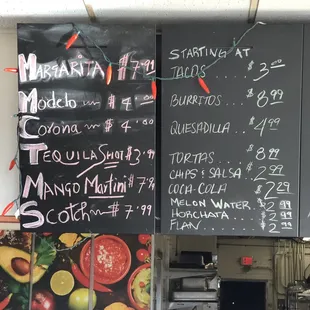 MARGARITA $7.99
Modelo $4.00
Corona $4.00
TEQUILA SHOT $3.99
MANGO MARTINI $7.99
SCOTCH $7.99
STARTING AT
TACOS.... $3.00
BURRITOS... $8.99
QUESADILLA.. $4.99
TORTAS.... $8.99
CHIPS & SALSA. $2.99
COCA-COLA $2.29
MELON WATER.. $2.99
HORCHATA..... $2.99
FLAN...... $2.99